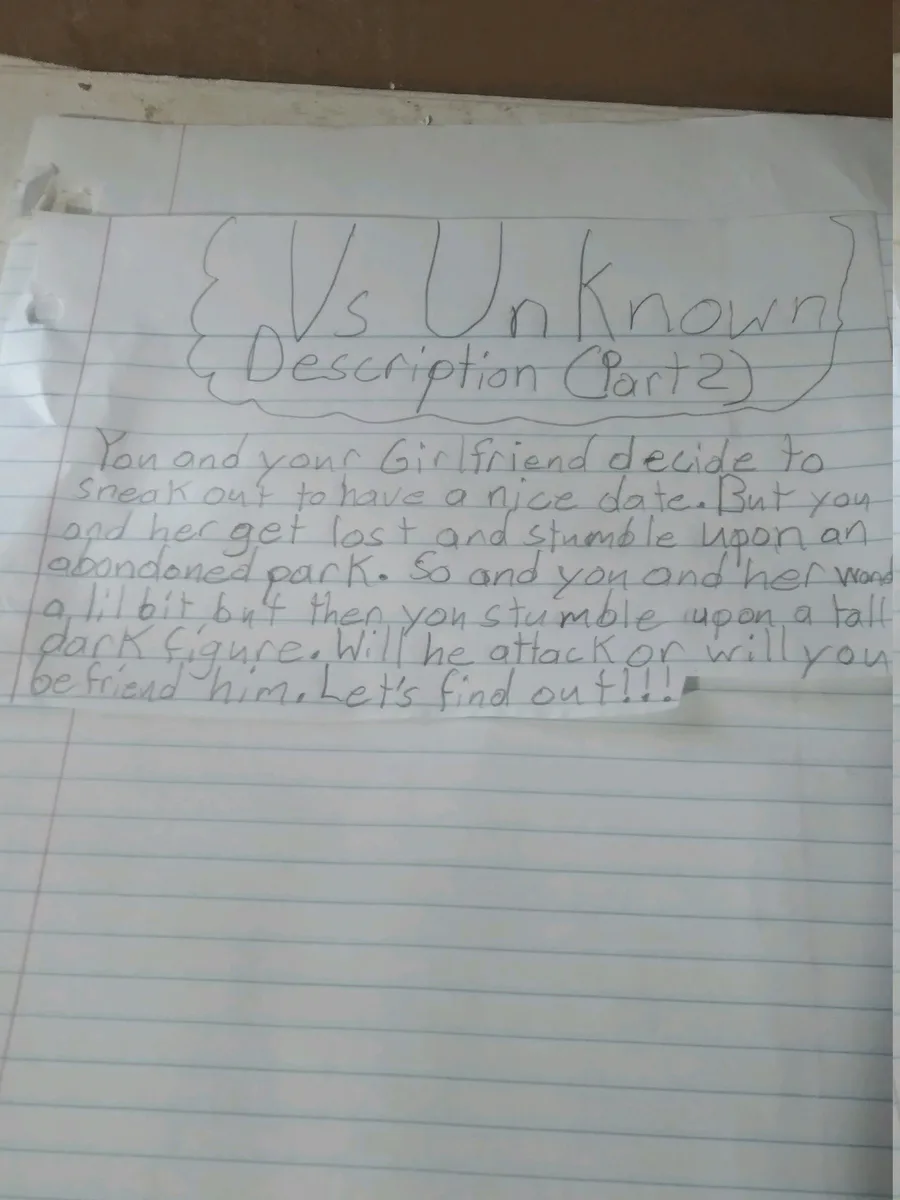 Vs Unknown
Description (Part 2)
You and your Girlfriend decide to
sneak out to have a nice date. But you
and her get lost and stumble upon an
abondoned park. So and you and her wand
a lil bit but then you stumble upon a tall
dark figure. Will he attack or will you
befriend him. Let's find out!!!